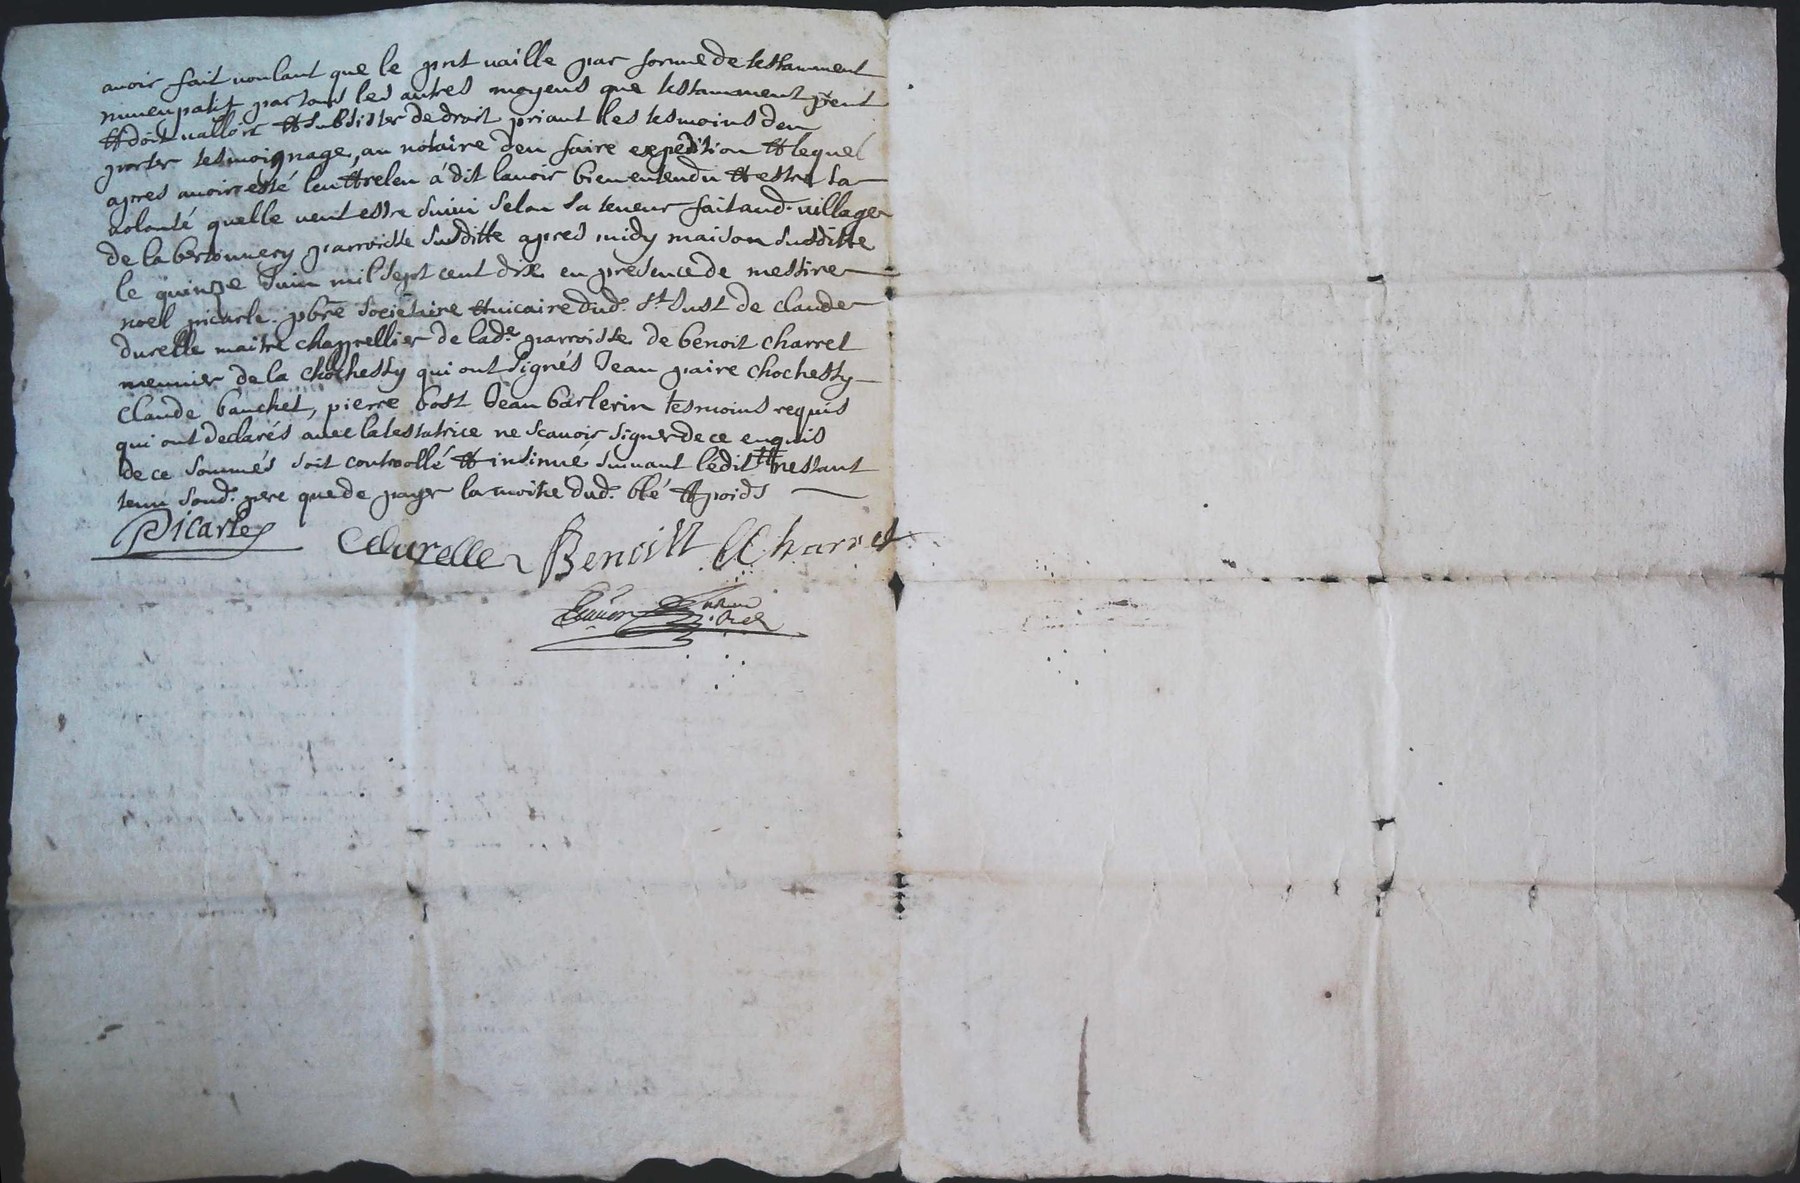 avoir fait voulant que le prnt vaille par forme de testamment
nuncupatif par tous les autres moyens que testamment peut
et doit valloir et subsister de droit priant les tesmoins den
porter tesmoignage, au notaire den faire expedition et lequel
apres avoir esté leu et releu á dit lavoir bien entendu et estre sa
volonté quelle veut estre suivi selon sa teneur fait aud. village
de la bertonnery parroisse susditte apres midy maison susditte
le quinze Juin mil sept cent dix en presence de messire
noel picarle pbre societaire et vicaire dud. St Just de claude
durelle maitre chappellier de lad.e parroisse de benoit charret
meunier de la chochessy qui ont signés Jean paire chochessy
Claude bauchet, pierre bost Jean barlerin tesmoins requis
qui ont declarés avec la testatrice ne scavoir signer de ce enquis
de ce sommés soit controollé et insinué suivant ledit et nestant
tenu sond. pere que de payer la moitie dud. blé et poids
Picarle
C durelle Benoitt Charret